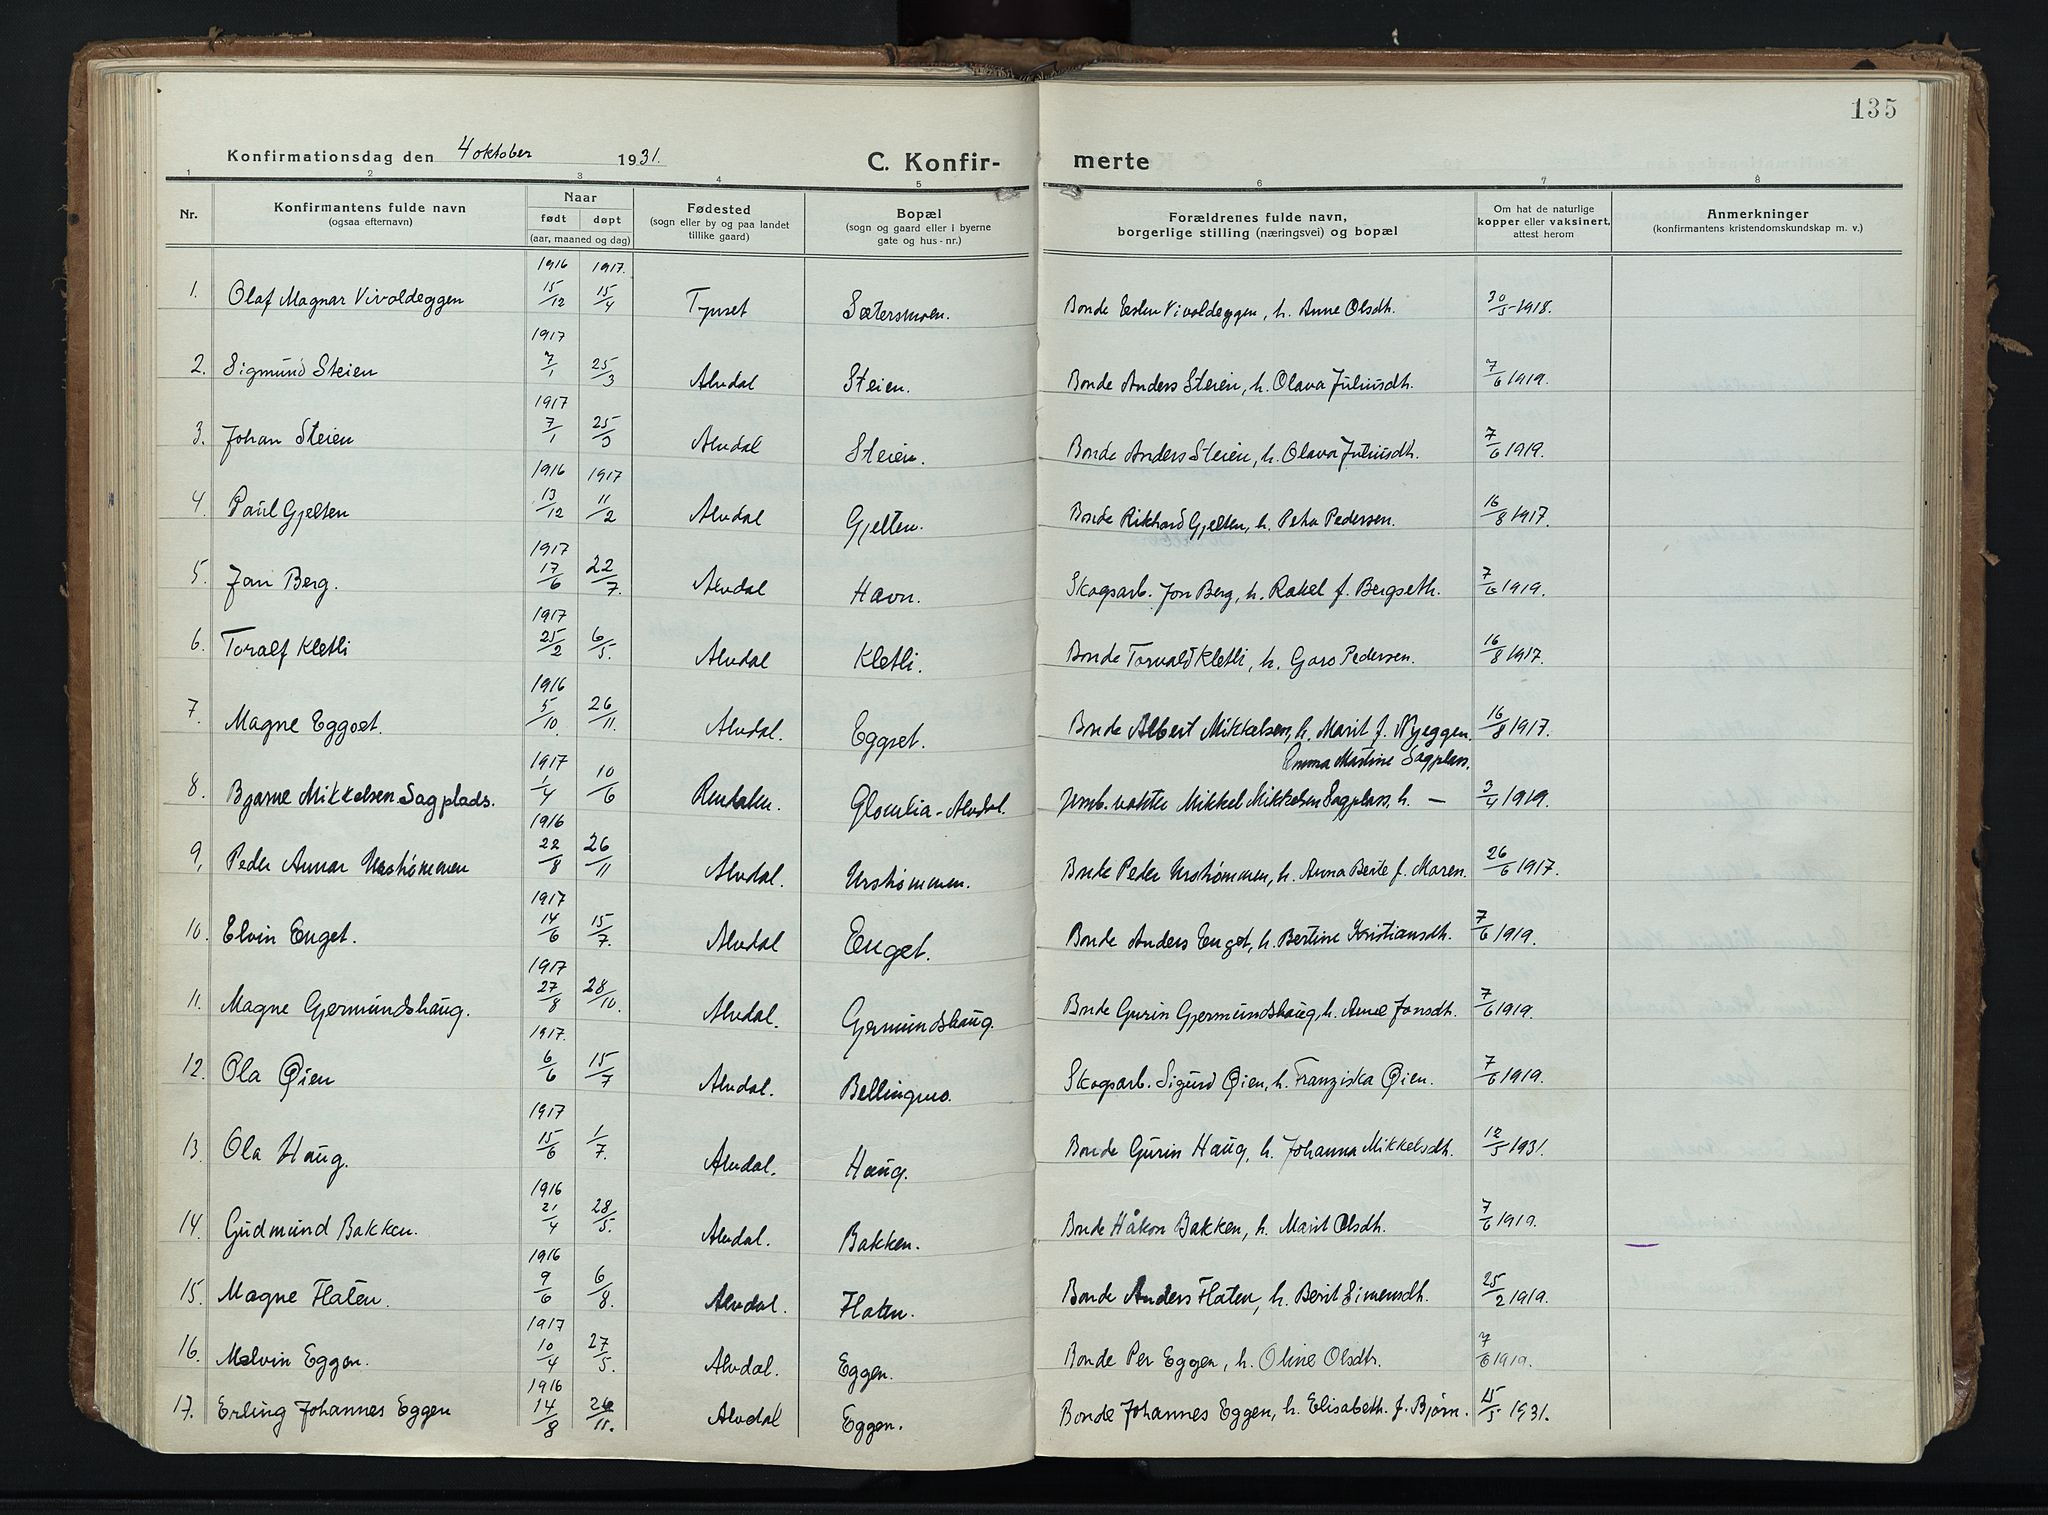 135
Konfirmationsdag den 4 oktober 1931. C. Konfir- merte
1 2 3 4 5 6 7 8
Nr. Konfirmantens fulde navn (ogsaa efternavn) Naar født døpt (aar, maaned og dag) Fødested (sogn eller by og paa landet tillike gaard) Bopæl (sogn og gaard eller i byerne gate og hus-nr.) Forældrenes fulde navn, borgerlige stilling (næringsvei) og bopæl Om hat de naturlige kopper eller vaksinert, attest herom Anmerkninger (konfirmantens kristendomskundskap m. v.)
1916 1917.
1. Olaf Magnar Vivoldeggen 15/12 15/4 Tynset Sætersmoen. Bonde Esten Vivoldeggen, h. Anne Olsdh. 30/5-1918.
1917
2. Sigmund Steien 7/1 25/3 Alvdal Steien. Bonde Anders Steien, h. Olava Juliusdh. 7/6 1919.
1917
3. Johan Steien 7/1 25/3 Alvdal Steien. Bonde Anders Steien, h. Olava Juliusdh. 7/6 1919.
1916 1917
4 Paul Gjelten 13/12 11/2 Alvdal Gjelten. Bonde Rikhard Gjelten, h. Petra Pedersen. 16/8 1917.
1917
5. Jan Berg. 17/6 22/7. Alvdal Havn. Skogsarb. Jon Berg, h. Rakel f. Bergseth. 7/6 1919.
1917
6. Toralf Kletli 25/2 6/5. Alvdal Kletli. Bonde Torvald Kletli, h. Goro Pedersen. 16/8 1917.
1916
7. Magne Eggset. 5/10. 26/11. Alvdal. Eggset. Bonde Albert Mikkelsen, h. Marit f. Nyeggen. 16/8 1917.
1917 Emma Martine Sagplass.
8. Bjarne Mikkelsen Sagplads. 1/4 10/6 Rendalen. Glomlia-Alvdal. Jernb.vokter Mikkel Mikkelsen Sagplass, h. — 3/4 1919.
1916
9, Peder Annar Urstrømmen 22/8 26/11 Alvdal. Urstrømmen. Bonde Peder Urstrømmen, h. Anna Berte f. Moren. 26/6 1917.
1917
10. Elvin Enget. 14/6 15/7. Alvdal Enget. Bonde Anders Enget, h. Bertine Kristiansdh. 7/6 1919.
1917
11. Magne Gjermundshaug. 27/8 28/10. Alvdal. Gjermundshaug. Bonde Gurin Gjermundshaug, h. Arnel Jonsdh. 7/6 1919.
1917.
12. Ola Øien 6/6 15/7 Alvdal. Bellingmo. Skogsarb. Sigurd Øien, h. Franziska Øien. 7/6 1919.
1917
13. Ola Haug. 15/6 1/7. Alvdal. Haug. Bonde Gurin Haug, h. Johanna Mikkelsdh. 12/5 1931.
1916
14. Gudmund Bakken. 21/4 28/5. Alvdal. Bakken. Bonde Håkon Bakken, h. Marit Olsdh. 7/6 1919.
1916
15. Magne Flaten. 9/6 6/8. Alvdal. Flaten. Bonde Anders Flaten, h. Berit Simensdh. 25/2 1919.
1917
16. Melvin Eggen. 10/4 27/5. Alvdal. Eggen. Bonde Per Eggen, h. Oline Olsdh. 7/6 1919.
1916
17. Erling Johannes Eggen 14/8 26/11. Alvdal Eggen. Bonde Johannes Eggen, h. Elisabeth f. Bjørn. 15/5 1931.